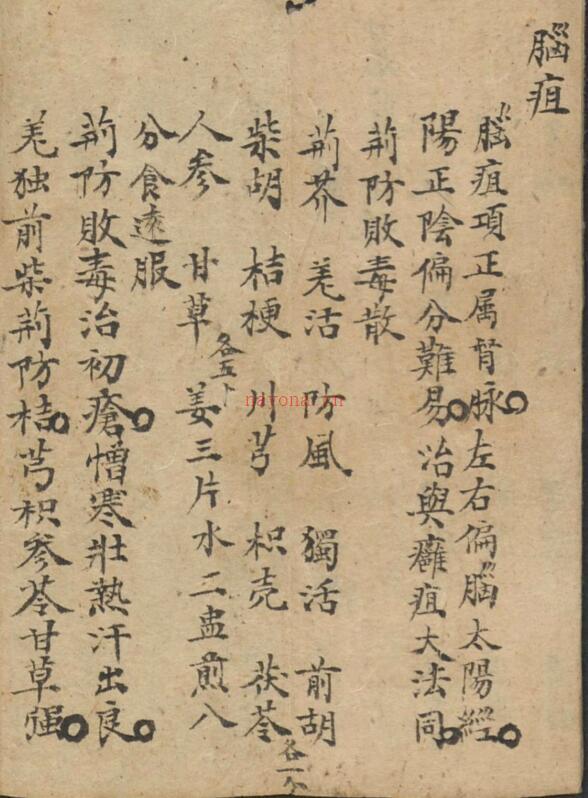 腦疽
腦疽項正属督脉左右偏腦太陽經
陽正陰偏分難易治與癰疽大法同
荊防敗毒散
荊芥 羌活 防風 獨活 前胡
柴胡 桔梗 川芎 枳壳 茯苓各一个
人参 甘草各五卜 姜三片水二盅煎八
分食遠服
荊防敗毒治初瘡憎寒壯熱汗出良
羌独前柴荊防桔芎枳参苓甘草强
nayona.cn